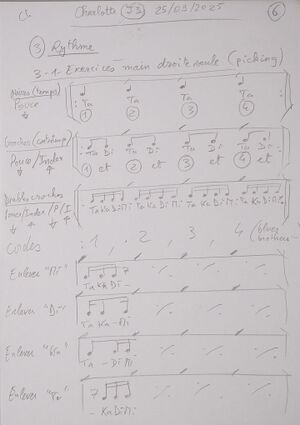 Charlotte J3 25/09/2025 6
3 Rythme
3-1-Exercices main droite seule (picking)
Noires (temps)
Pouce
Ta Ta Ta Ta
1 2 3 4
Croches (contretemps)
Pouce/Index
Ta Di Ta Di Ta Di Ta Di
1 et 2 et 3 et 4 et
Doubles croches
Pouce/Index/P/I
TaKaDiMi TaKaDiMi TaKaDiMi TaKaDiMi
: 1, 2, 3, 4
Enlever "Mi"
Ta Ka Di
Enlever "Di"
Ta Ka - Mi
Enlever "Ka"
Ta - Di Mi
Enlever "Ta"
- Ka Di Mi